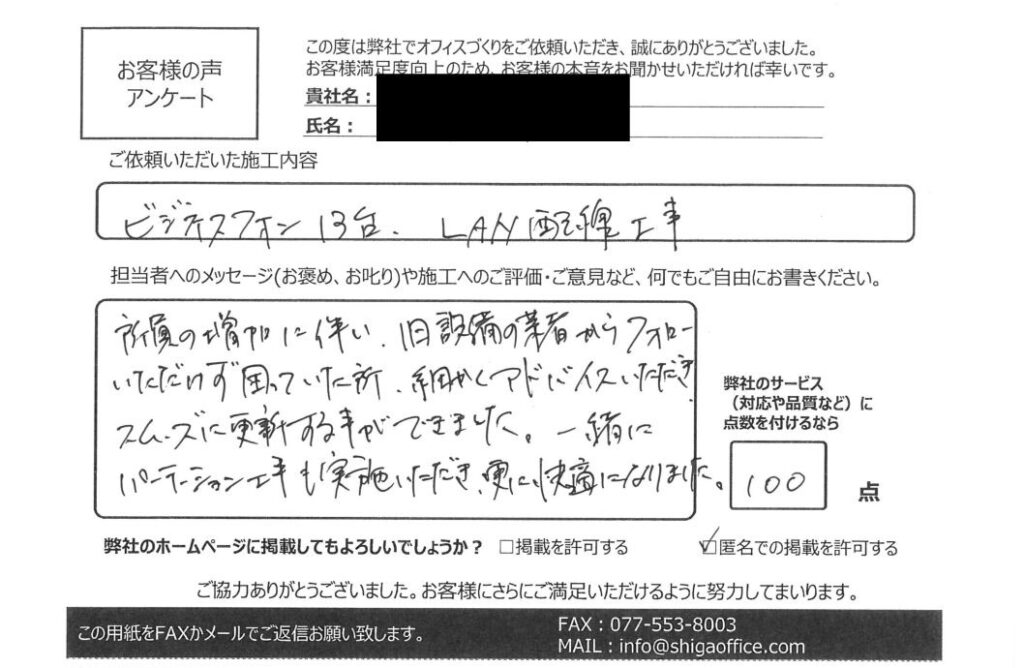 お客様の声
アンケート
この度は弊社でオフィスづくりをご依頼いただき、誠にありがとうございました。
お客様満足度向上のため、お客様の本音をお聞かせいただければ幸いです。
貴社名：
氏名：
ご依頼いただいた施工内容
ビジネスフォン13台、LAN配線工事
担当者へのメッセージ(お褒め、お叱り)や施工へのご評価・ご意見など、何でもご自由にお書きください。
所員の増加に伴い、旧設備の業者からフォロー
いただけず困っていた所、細かくアドバイスいただき
スムーズに更新する事ができました。一緒に
パーテーション工事も実施いただき、更に快適になりました。
弊社のサービス
（対応や品質など）に
点数を付けるなら
100 点
弊社のホームページに掲載してもよろしいでしょうか？ □掲載を許可する ☑匿名での掲載を許可する
ご協力ありがとうございました。お客様にさらにご満足いただけるように努力してまいります。
この用紙をFAXかメールでご返信お願い致します。
FAX：077-553-8003
MAIL：info@shigaoffice.com